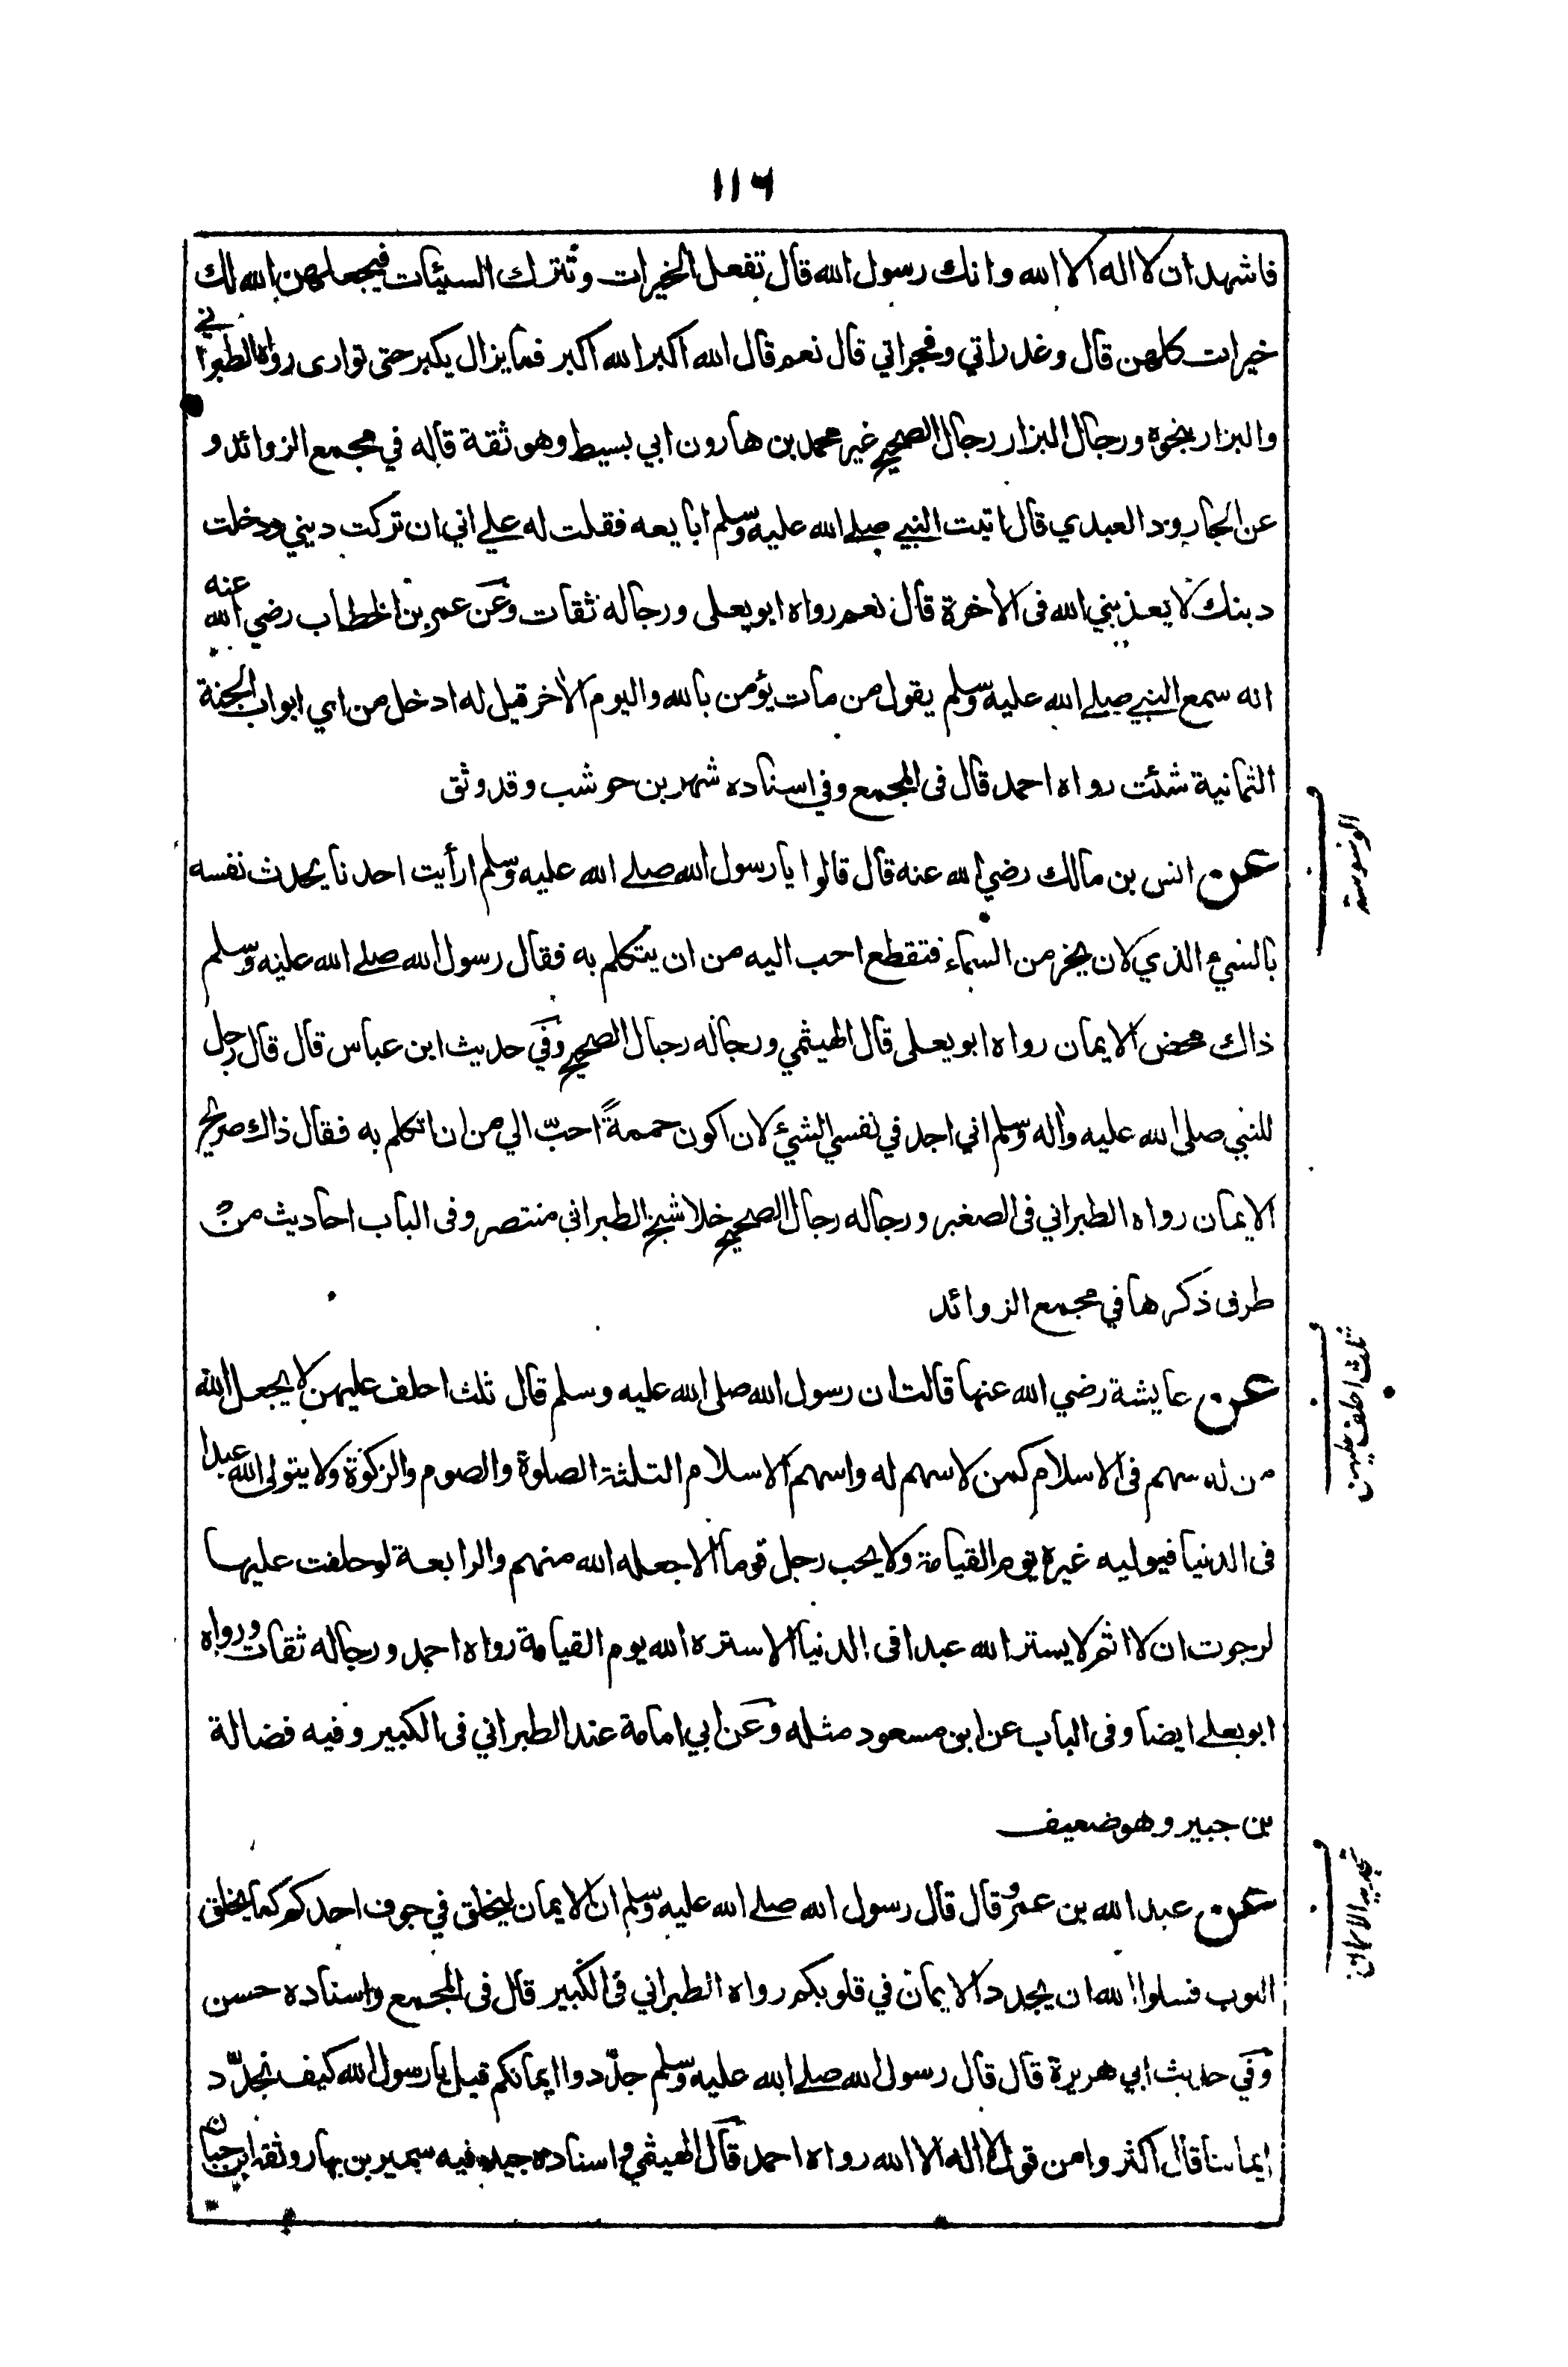 ١١٦
فاشهد ان لا اله الا الله وانك رسول الله قال تفعل الخيرات وتترك السيئات فيجعلهن الله لك
خيرات كلهن قال وغدراتي وفجراتي قال نعم قال الله اكبر الله اكبر فما يزال يكبر حتى توارى رواه الطبراني
والبزار بنحوه ورجال البزار رجال الصحيح غير محمد بن هارون ابي بسيط وهو ثقة قاله في مجمع الزوائد و
عن الجارود العبدي قال اتيت النبي صلے الله عليه وسلم ابايعه فقلت له علے اني ان تركت ديني ودخلت
دينك لا يعذبني الله فى الأخرة قال نعم رواه ابو يعلى ورجاله ثقات وعن عمر بن الخطاب رضي الله عنه
انه سمع النبي صلے الله عليه وسلم يقول من مات يؤمن بالله واليوم الأخر قيل له ادخل من اي ابواب الجنة
الثمانية شئت رواه احمد قال فى المجمع وفي اسناده شهر بن حوشب وقد وثق
الوسوسة
عن انس بن مالك رضي الله عنه قال قالوا يا رسول الله صلے الله عليه وسلم ارأيت احدنا يحدث نفسه
بالشيء الذي لان يخر من السماء فتقطع احب اليه من ان يتكلم به فقال رسول الله صلے الله عليه وسلم
ذاك محض الايمان رواه ابو يعلى قال الهيثمي ورجاله رجال الصحيح وفي حديث ابن عباس قال قال رجل
للنبي صلى الله عليه وأله وسلم اني اجد في نفسي الشيئ لان اكون حممةً احبّ الي من ان اتكلم به فقال ذاك صريح
الايمان رواه الطبراني فى الصغير ورجاله رجال الصحيح خلا شيخ الطبراني منتصر وفى الباب احاديث من
طرق ذكرها في مجمع الزوائد
ثلث احلف عليهن
عن عايشة رضي الله عنها قالت ان رسول الله صلى الله عليه وسلم قال ثلث احلف عليهن لا يجعل الله
من له سهم فى الاسلام كمن لا سهم له واسهم الاسلام الثلثة الصلوة والصوم والزكوة ولا يتولى الله عبدا
فى الدنيا فيوليه غيره يوم القيامة ولا يحب رجل قوما الا جعله الله منهم والرابعة لو حلفت عليها
لرجوت ان لا اثم لا يستر الله عبدا فى الدنيا الا ستره الله يوم القيامة رواه احمد ورجاله ثقات ورواه
ابو يعلے ايضا وفى الباب عن ابن مسعود مثله وعن ابي امامة عند الطبراني فى الكبير وفيه فضالة
بن جبير وهو ضعيف
تجديد الايمان
عن عبد الله بن عمرو قال قال رسول الله صلے الله عليه وسلم ان الايمان ليخلق في جوف احدكم كما يخلق
الثوب فسلوا الله ان يجدد الايمان في قلوبكم رواه الطبراني فى الكبير قال فى المجمع واسناده حسن
وفي حديث ابي هريرة قال قال رسول الله صلے الله عليه وسلم جدّدوا ايمانكم قيل يا رسول الله كيف نجدّد
ايماننا قال اكثروا من قول لا اله الا الله رواه احمد قال الهيثمي واسناده جيد وفيه سمير بن نهار وثقه ابن حبان